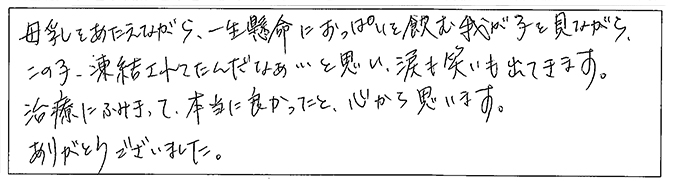 母乳をあたえながら、一生懸命におっぱいを飲む我が子を見ながら、
この子、凍結されてたんだなぁ…と思い、涙も笑いも出てきます。
治療にふみきって、本当に良かったと、心から思います。
ありがとうございました。